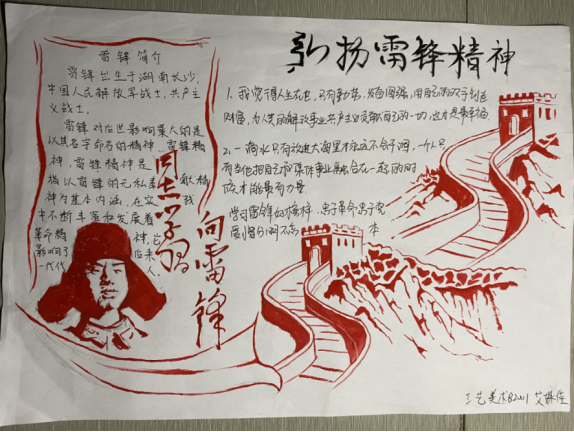 弘扬雷锋精神
雷锋简介
雷锋出生于湖南长沙,
中国人民解放军战士,共产主
义战士。
雷锋对后世影响最大的是
以其名字命名的精神,雷锋精
神,雷锋精神是
指以雷锋的无私奉献精
神为基本内涵,在实践
中不断丰富和发展着
革命精神,它
影响了后来
一代代人
向雷锋
同志学习
1、我觉得人生在世,只有勤劳,发奋图强,用自己的双手创造
财富,为人类的解放事业共产主义贡献自己的一切,这才是最幸福
2、一滴水只有放进大海里才永远不会干涸,一个人只
有当他把自己和集体事业融合在一起的时
候才能最有力量
学习雷锋好榜样,忠于革命忠于党
爱憎分明不忘本
工艺美术